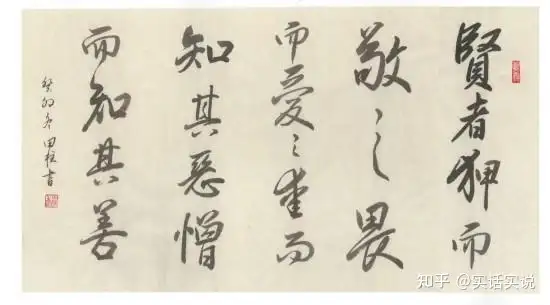 賢者狎而
敬之畏
而愛之愛而
知其惡憎
而知其善
癸卯冬 田 书
知乎 @实话实说